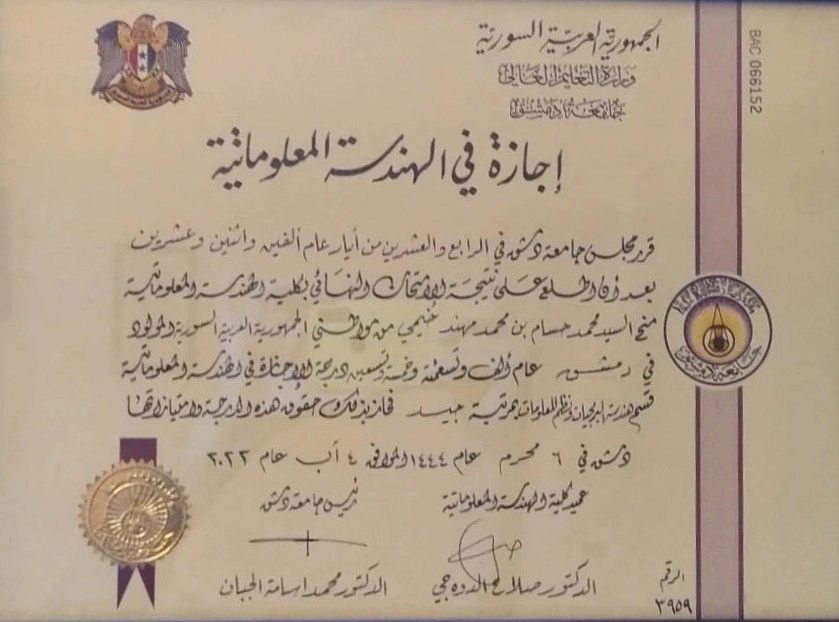 الجمهورية العربية السورية
وزارة التعليم العالي
جامعة دمشق
BAC 066152
إجازة في الهندسة المعلوماتية
قرر مجلس جامعة دمشق في الرابع والعشرين من أيار عام ألفين واثنين وعشرين
بعد أن اطلع على نتيجة الامتحان النهائي بكلية الهندسة المعلوماتية
منح السيد محمد حسام بن محمد مهند غنيمي من مواطني الجمهورية العربية السورية المولود
في دمشق عام ألف وتسعمئة وخمسة وتسعين درجة الإجازة في الهندسة المعلوماتية
قسم هندسة البرمجيات ونظم المعلومات بمرتبة جيد فحاز بذلك حقوق هذه الدرجة وامتيازاتها
دمشق في ٦ محرم عام ١٤٤٤ الموافق ٤ آب عام ٢٠٢٢
عميد كلية الهندسة المعلوماتية رئيس جامعة دمشق
الدكتور صلاح الدوه جي الدكتور محمد أسامة الجبان
الرقم
٣٩٥٩
جامعة دمشق